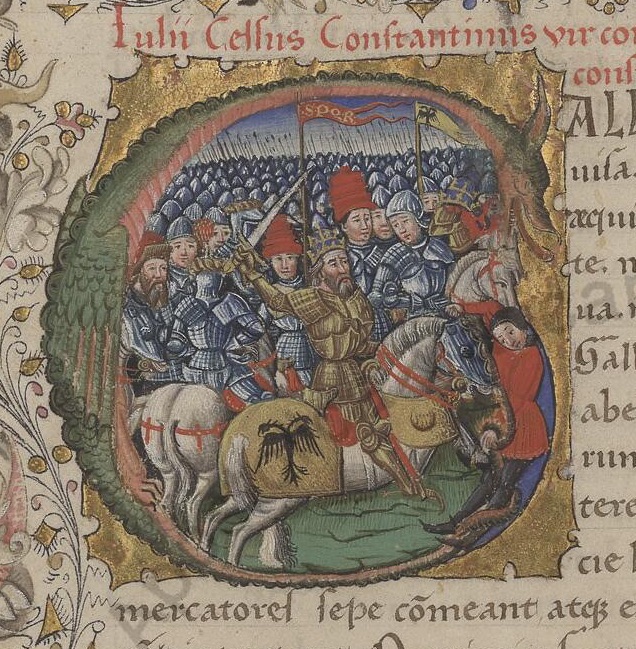 Iulii Celsus Constantinus vir con
cons
SPQR
ALL
uisa.
aequi
te. n
ua. n
Gall
abe
run
tere
cie l
mercatores sepe cōmeant atq̃ e